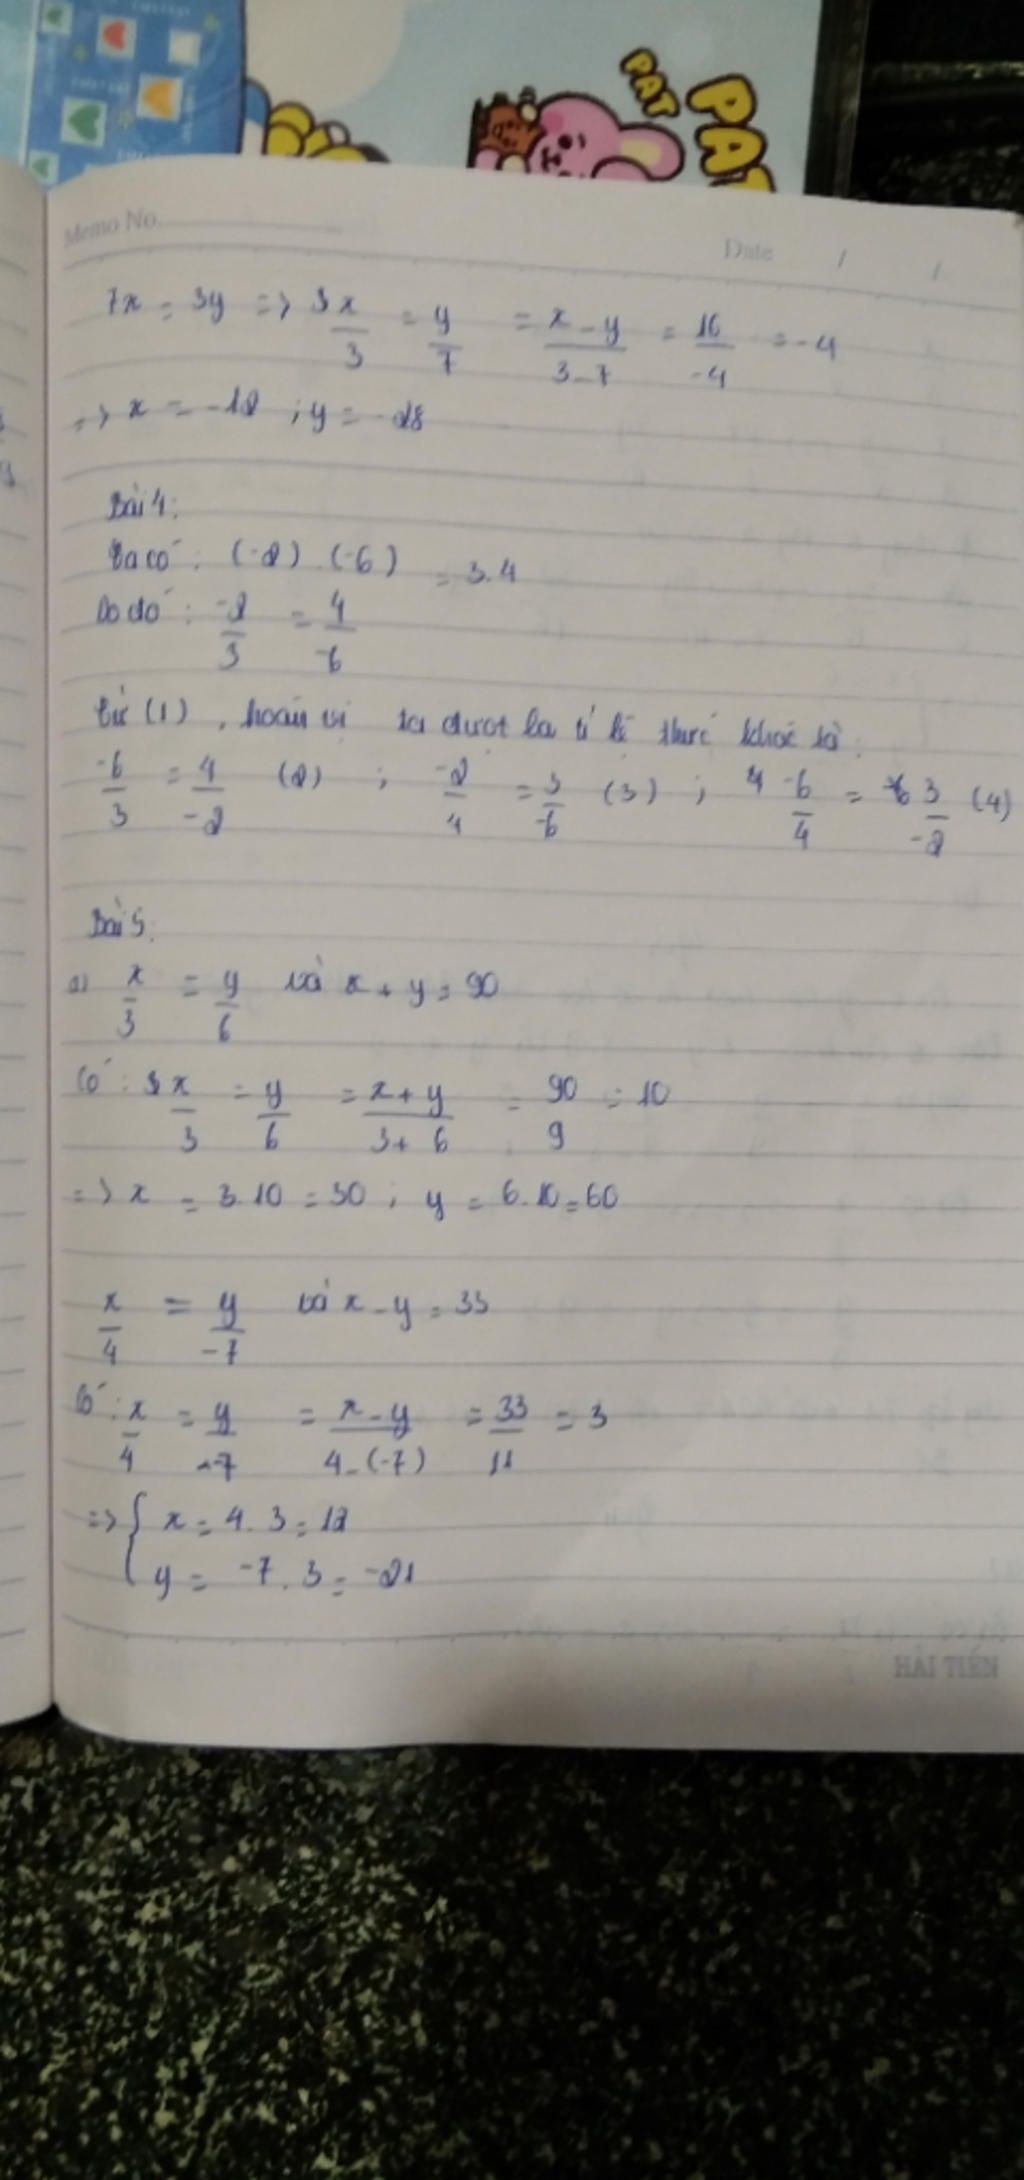 PAT
PAT
Memo No.
Date / /
7x = 3y => x/3 = y/7 = x-y/3-7 = 16/-4 = -4
=> x = -12 ; y = -28
Bài 4:
Ta có : (-2) . (-6) = 3.4
Do đó : -2/3 = 4/-6
từ (1) , hoán vị ta được ba tỉ lệ thức khác là :
-6/3 = 4/-2 (2) ; -2/4 = 3/-6 (3) ; -6/4 = 3/-2 (4)
Bài 5:
a) x/3 = y/6 và x + y = 90
Có : x/3 = y/6 = x+y/3+6 = 90/9 = 10
=> x = 3.10 = 30 ; y = 6.10 = 60
x/4 = y/-7 và x - y = 33
Có : x/4 = y/-7 = x-y/4-(-7) = 33/11 = 3
=> { x = 4.3 = 12
y = -7.3 = -21
HẢI TIẾN